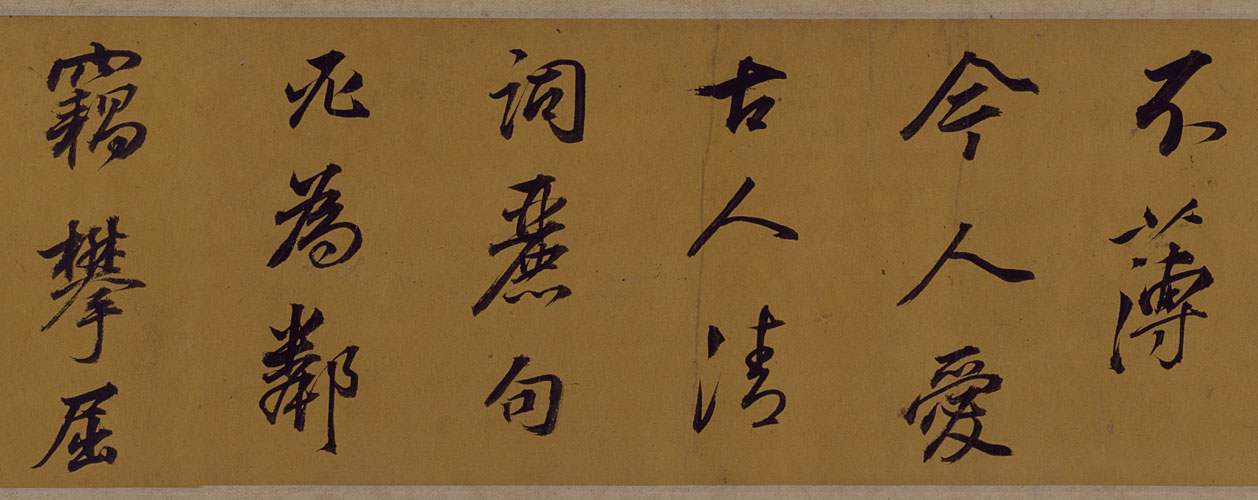 不薄
今人愛
古人清
詞麗句
為鄰
竊攀屈